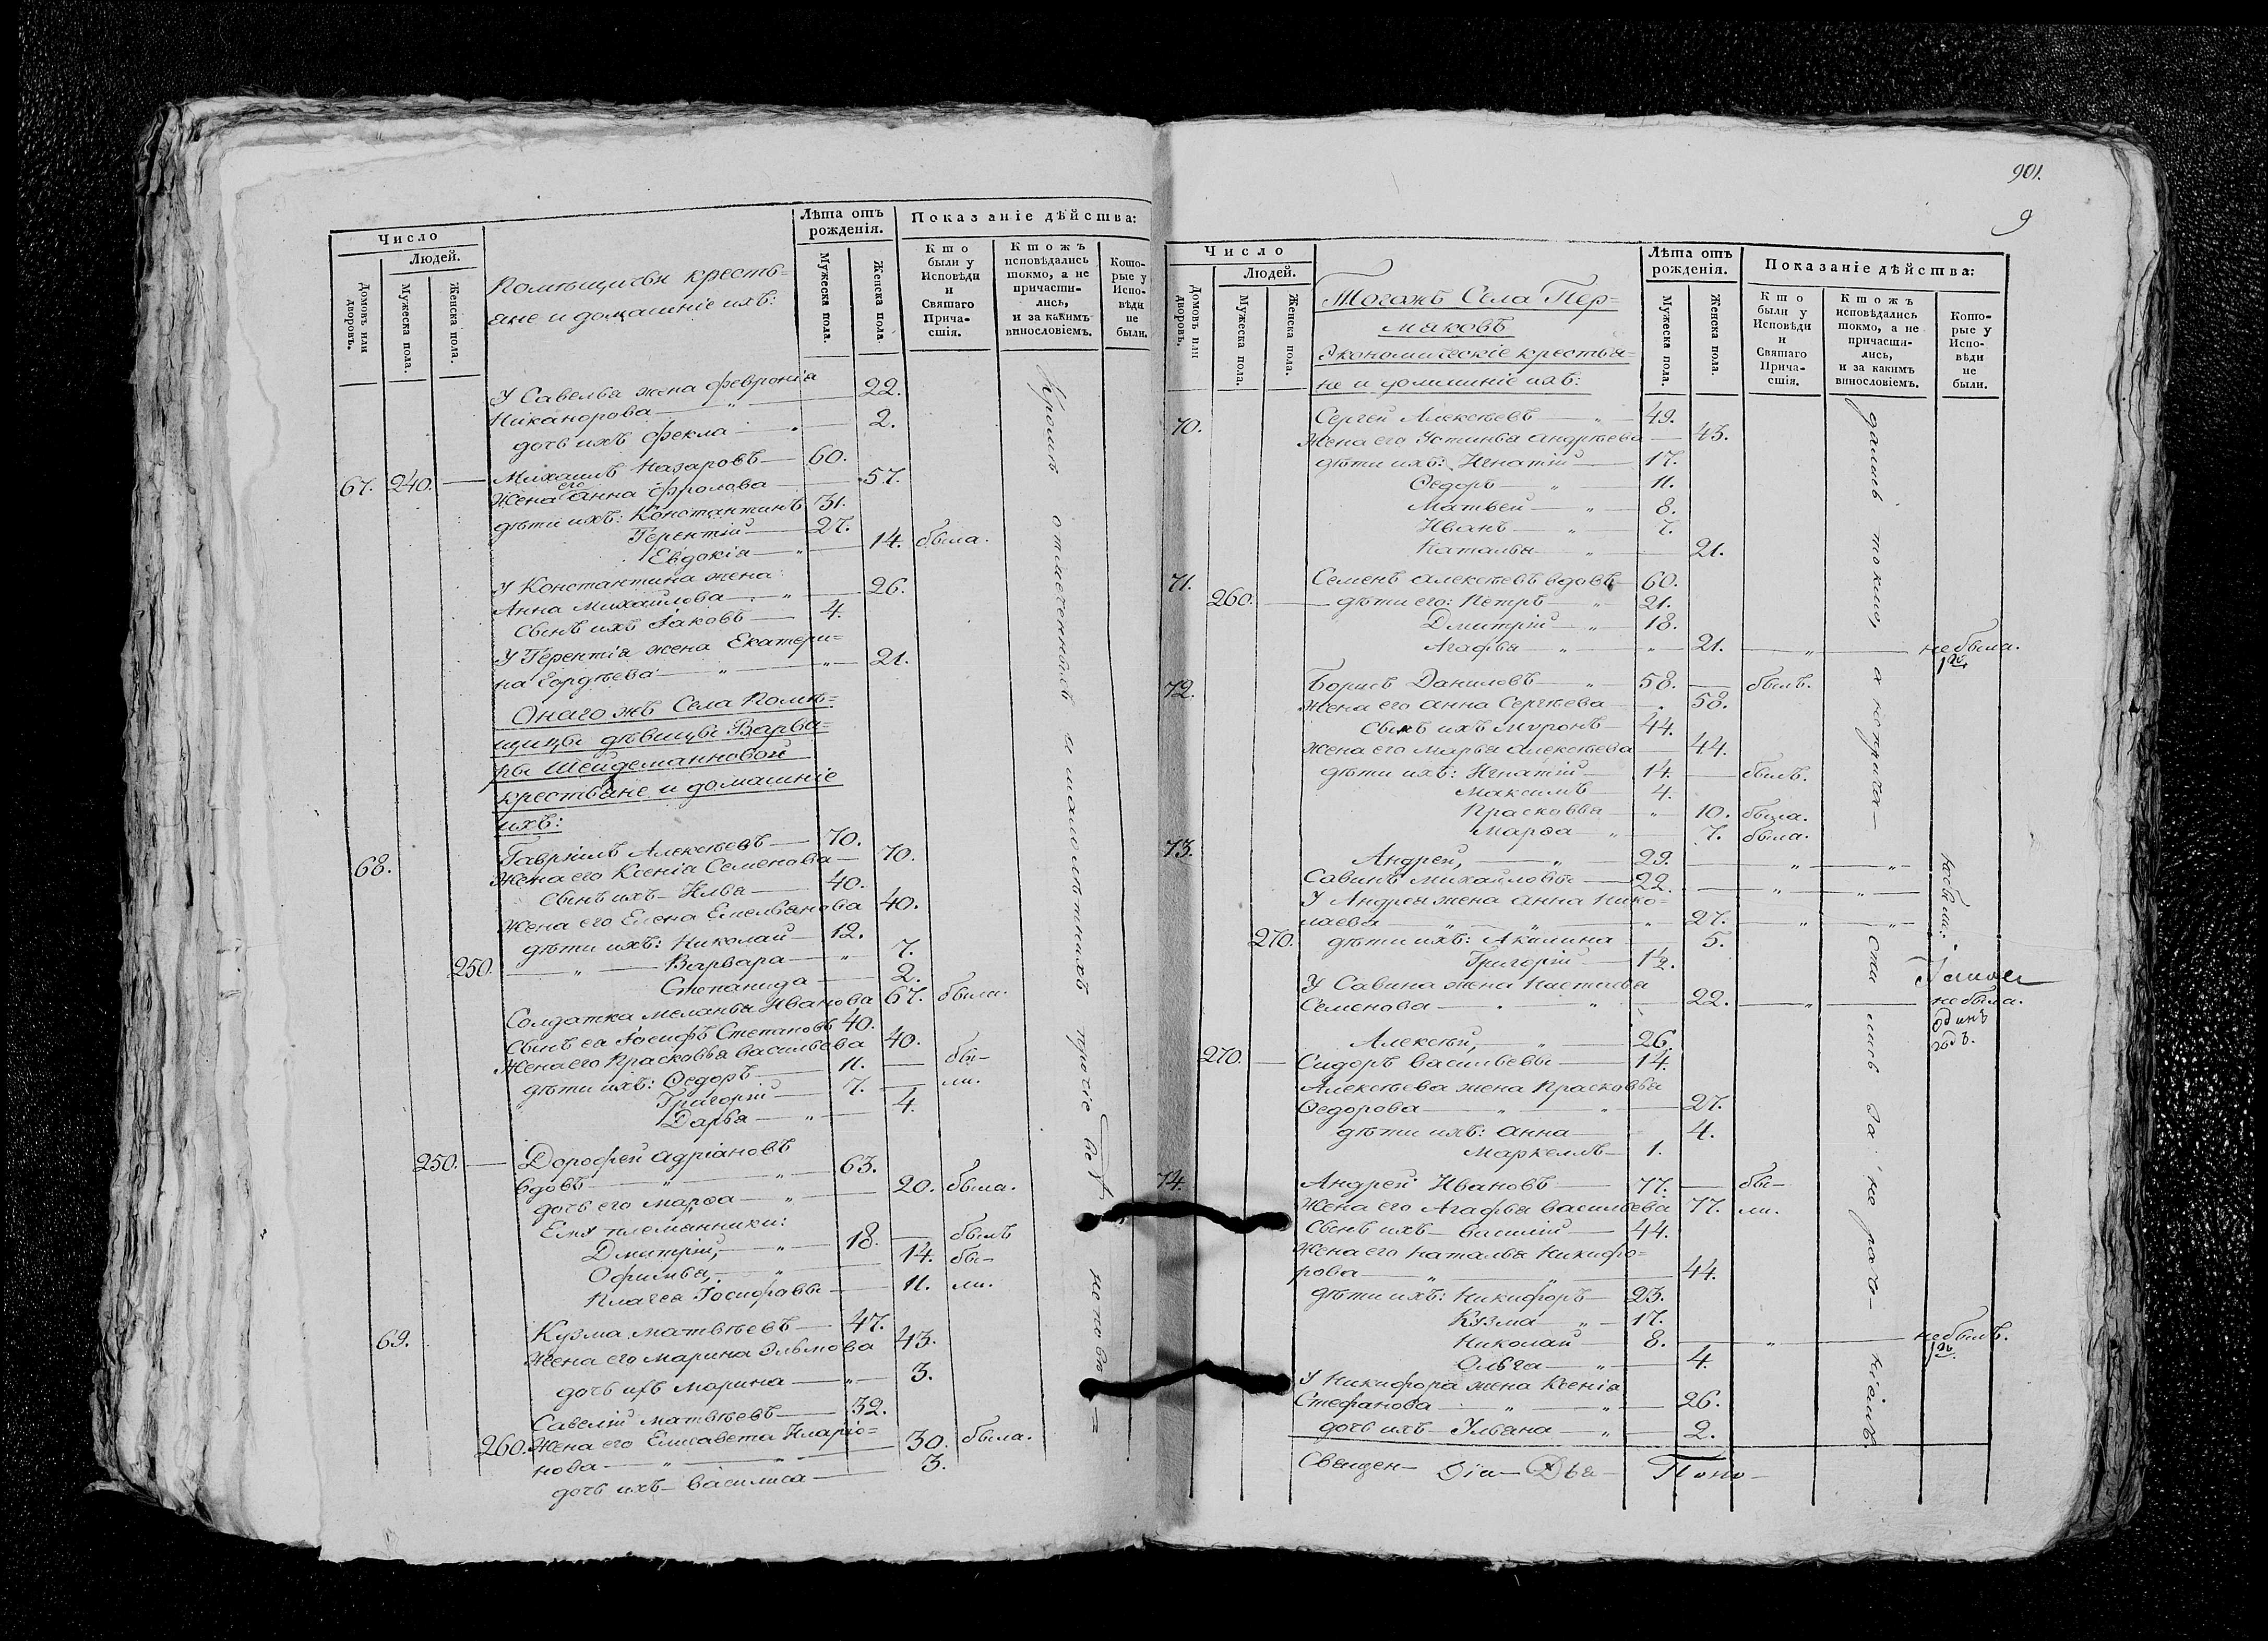 Число
Людей.
Домовъ или дворовъ.
Мужеска пола.
Женска пола.
Помѣщичьи кресть=
яне и домашніе ихъ:
Лѣта отъ
рожденія.
Мужеска пола.
Женска пола.
Показаніе дѣйства:
Кто
были у
Исповѣди
и
Святаго
Прича-
стія.
Ктожъ
исповѣдались
токмо, а не
причасти-
лись,
и за какимъ
винословіемъ.
Кото-
рые у
Испо-
вѣди
не
были.
У Савелья жена Февронія
Никанорова — " — 22.
дочь ихъ Фекла — 2.
67. 240. — Михаилъ Назаровъ — 60.
Жена его Анна Фролова — 57.
дѣти ихъ: Константинъ 31.
Терентій — 27.
Евдокія — " — 14. была.
У Константина жена
Анна Михайлова — " — 26.
Сынъ ихъ Іаковъ — 4.
У Терентія жена Екатери=
на Гордѣева — " — 21.
Онаго жъ Села Помѣ=
щицы дѣвицы Варва=
ры Шейдеманновой
крестьяне и домашніе
ихъ:
68. Гавріилъ Алексѣевъ — 70.
Жена его Ксенія Семенова — 70.
Сынъ ихъ — Илья — 40.
Жена его Елена Емельянова 40.
дѣти ихъ: Николай — 12.
250. — " — Варвара — " 7.
Степанида — 2.
Солдатка Меланья Иванова 67. была.
Сынъ ея Іосифъ Степановъ 40.
Жена его Прасковья Васильева 40.
дѣти ихъ: Ѳедоръ — 11. — бы-
Григорій — 7. — ли.
Дарья — " — 4.
250. — Дорофей Адріановъ
вдовъ — " — " — 63.
дочь его Марѳа — " — 20. была.
Емꙋ племянники:
Дмитрій, — " — 18. — былъ
Офимья, — " — 14. бы-
Плагея Іосифовы — 11. ли.
69. Кузма Матвѣевъ — 47.
Жена его Марина 43.
дочь ихъ Марина — " — 3.
Савелій Матвѣевъ — 32.
260. Жена его Елисавета Иларіо=
нова — " — " — 30. была.
дочь ихъ — Василиса — 3.
Кромѣ отмеченныхъ и малолѣтнихъ прочіе
901.
9
Число
Людей.
Домовъ или дворовъ.
Мужеска пола.
Женска пола.
Тогожъ Села Пер=
мяковъ
Экономическіе крестья=
не и домашніе ихъ:
Лѣта отъ
рожденія.
Мужеска пола.
Женска пола.
Показаніе дѣйства:
Кто
были у
Исповѣди
и
Святаго
Прича-
стія.
Ктожъ
исповѣдались
токмо, а не
причасти-
лись,
и за какимъ
винословіемъ.
Кото-
рые у
Испо-
вѣди
не
были.
70. Сергей Алексѣевъ — " — 49.
Жена его Устинья Андрѣева — 43.
дѣти ихъ: Игнатій — 17.
Ѳедоръ — " — 11.
Матвей — " — 8.
Иванъ — " 7.
Наталья — " — 21.
71. Семенъ Алексѣевъ вдовъ — 60.
260. — дѣти его: Петръ — " — 21.
Дмитрій — " — 18.
Агафья — " — " — 21. — " — не была.
72. Борисъ Даниловъ — " — 58. — былъ.
Жена его Анна Сергѣева — 58.
Сынъ ихъ Миронъ — 44.
Жена его Марья Алексѣева — 44.
дѣти ихъ: Игнатій — 14. — былъ.
Максимъ — 4.
Прасковья — " — 10. была.
Марѳа — " — 7. была.
73. Андрей, — " — 29. — " — "
Савинъ Михайловы — 22. — " — "
У Андрея жена Анна Нико=
лаева — " — " — 27. — " — "
270. дѣти ихъ: Акилина — 5.
Григорій — 1½.
У Савина жена Настасья
Семенова — " — 22. — " — не была.
одинъ
годъ.
Алексѣй, — " — 26.
270. — Сидоръ Васильевы — 14.
Алексѣева жена Прасковья
Ѳедорова — " — " — 27.
дѣти ихъ: Анна — 4.
Маркеллъ — 1.
74. Андрей Ивановъ — 77. — бы-
Жена его Агафья Васильева 77. ли.
Сынъ ихъ — Василій — 44.
Жена его Наталья Никифо=
рова — " — " — 44.
дѣти ихъ: Никифоръ — 23.
Кузма — " — 17.
Николай — 8. — " — не былъ.
Ольга — " — 4.
У Никифора жена Ксенія
Стефанова — " — " — 26.
дочь ихъ — Ульяна — " — 2.
дались токмо, а не прича-
сти лись за не радѣ- ніемъ
не были.
Священ-